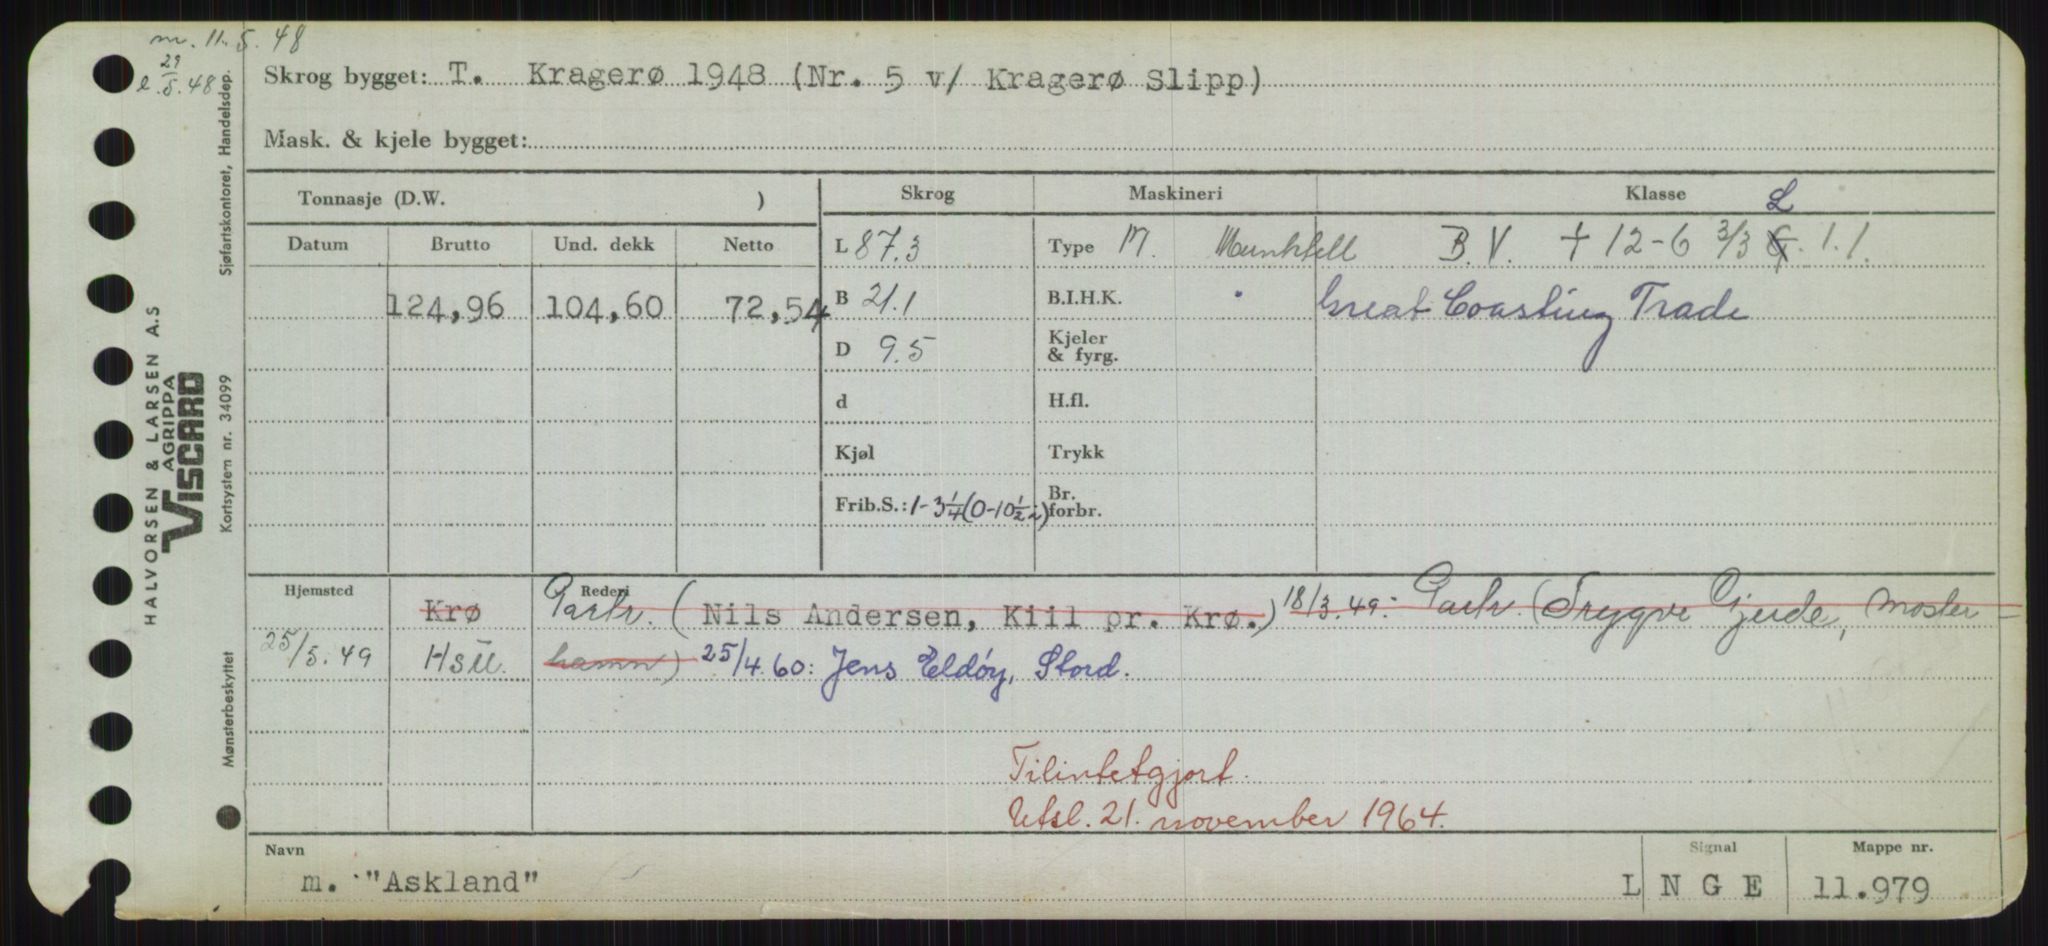 m. 11.5.48
29
l. 5. 48
Skrog bygget: T. Kragerø 1948 (Nr. 5 v/ Kragerø Slipp)
Mask. & kjele bygget:
Tonnasje (D.W. )
Skrog
Maskineri
Klasse
L
Datum
Brutto
Und. dekk
Netto
L 87.3
Type M. Munktell
B.V. + 12-6 3/3 G. 1.1.
124,96
104,60
72,54
B 21.1
B.I.H.K.
Great Coasting Trade
D 9.5
Kjeler
& fyrg.
d
H.fl.
Kjøl
Trykk
Frib.S.: 1-3 1/4 (0-10 1/2)
Br.
forbr.
Hjemsted
Rederi
Krø Partr. (Nils Andersen, Kiil pr. Krø.) 18/3.49: Partr. (Trygve Gjerde, Moster-
25/5.49 Hsu. hamn) 25/4.60: Jens Eldøy, Stord.
Tilintetgjort.
Utsl. 21. november 1964.
Navn
m. "Askland"
Signal
LNGE
Mappe nr.
11.979
HALVORSEN & LARSEN A.S
AGRIPPA
VISCARD
Sjøfartskontoret, Handelsdep.
Kortsystem nr. 34099
Mønsterbeskyttet